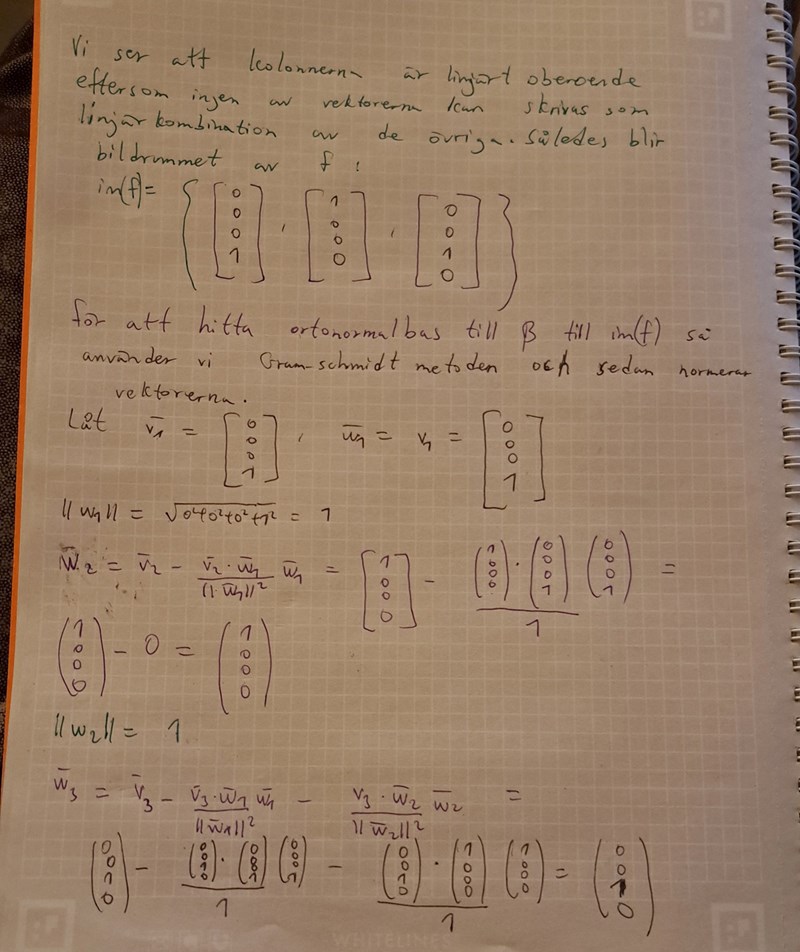 Vi ser att kolonnerna är linjärt oberoende
eftersom ingen av vektorerna kan skrivas som
linjär kombination av de övriga. Således blir
bildrummet av f:
im(f)= { [0 0 0 1], [1 0 0 0], [0 0 1 0] }
för att hitta ortonormalbas till β till im(f) så
använder vi Gram-schmidt metoden och sedan normerar
vektorerna.
Låt v̄₁ = [0 0 0 1], w̄₁ = v₁ = [0 0 0 1]
||w₁|| = √(0²+0²+0²+1²) = 1
w̄₂ = v̄₂ - (v̄₂·w̄₁)/(||w̄₁||²) w̄₁ = [1 0 0 0] - ((1 0 0 0)·(0 0 0 1))/1 (0 0 0 1) =
(1 0 0 0) - 0 = (1 0 0 0)
||w₂|| = 1
w̄₃ = v̄₃ - (v̄₃·w̄₁)/(||w̄₁||²) w̄₁ - (v₃·w̄₂)/(||w̄₂||²) w̄₂ =
(0 0 1 0) - ((0 0 1 0)·(0 0 0 1))/1 (0 0 0 1) - ((0 0 1 0)·(1 0 0 0))/1 (1 0 0 0) = (0 0 1 0)
WHITELINES